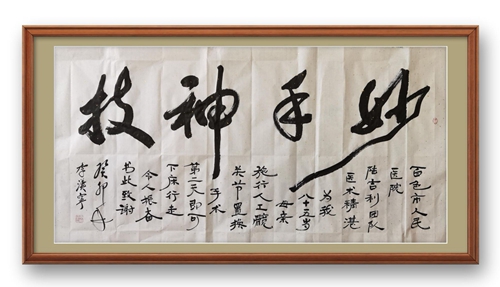 妙手神技
百色市人民
医院
陆吉利团队
医术精湛
为我
八十五岁
母亲
施行人工髋
关节置换
手术
第二天即可
下床行走
令人振奋
书此致谢
癸卯年
李漢寧